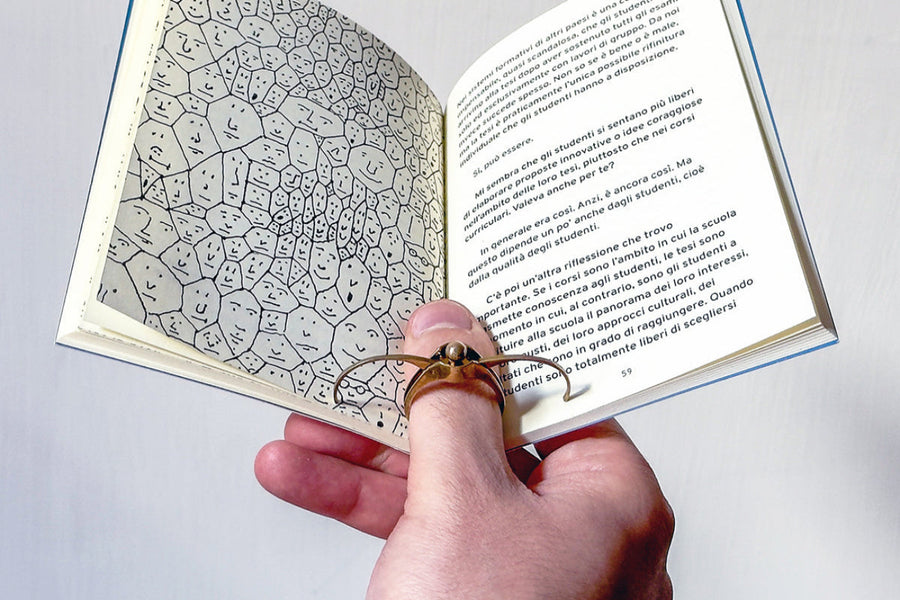 Nei sistemi formativi di altri paesi è una co
pensabile, quasi scandalosa, che gli studenti
arrivino alla tesi dopo aver sostenuto tutti gli esami
ed esclusivamente con lavori di gruppo. Da noi
invece succede spesso. Non so se è bene o è male,
ma la tesi è praticamente l'unica possibile rifinitura
individuale che gli studenti hanno a disposizione.
Sì, può essere.
Mi sembra che gli studenti si sentano più liberi
di elaborare proposte innovative o idee coraggiose
nell'ambito delle loro tesi, piuttosto che nei corsi
curriculari. Valeva anche per te?
In generale era così. Anzi, è ancora così. Ma
questo dipende un po' anche dagli studenti, cioè
dalla qualità degli studenti.
C'è poi un'altra riflessione che trovo
portante. Se i corsi sono l'ambito in cui la scuola
smette conoscenza agli studenti, le tesi sono
omento in cui, al contrario, sono gli studenti a
uire alla scuola il panorama dei loro interessi,
isti, dei loro approcci culturali, dei
tati che sono in grado di raggiungere. Quando
tudenti sono totalmente liberi di scegliersi
59